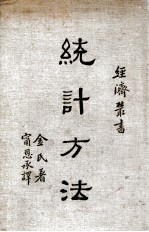 經濟叢書
統計方法
金氏著
甯恩承譯